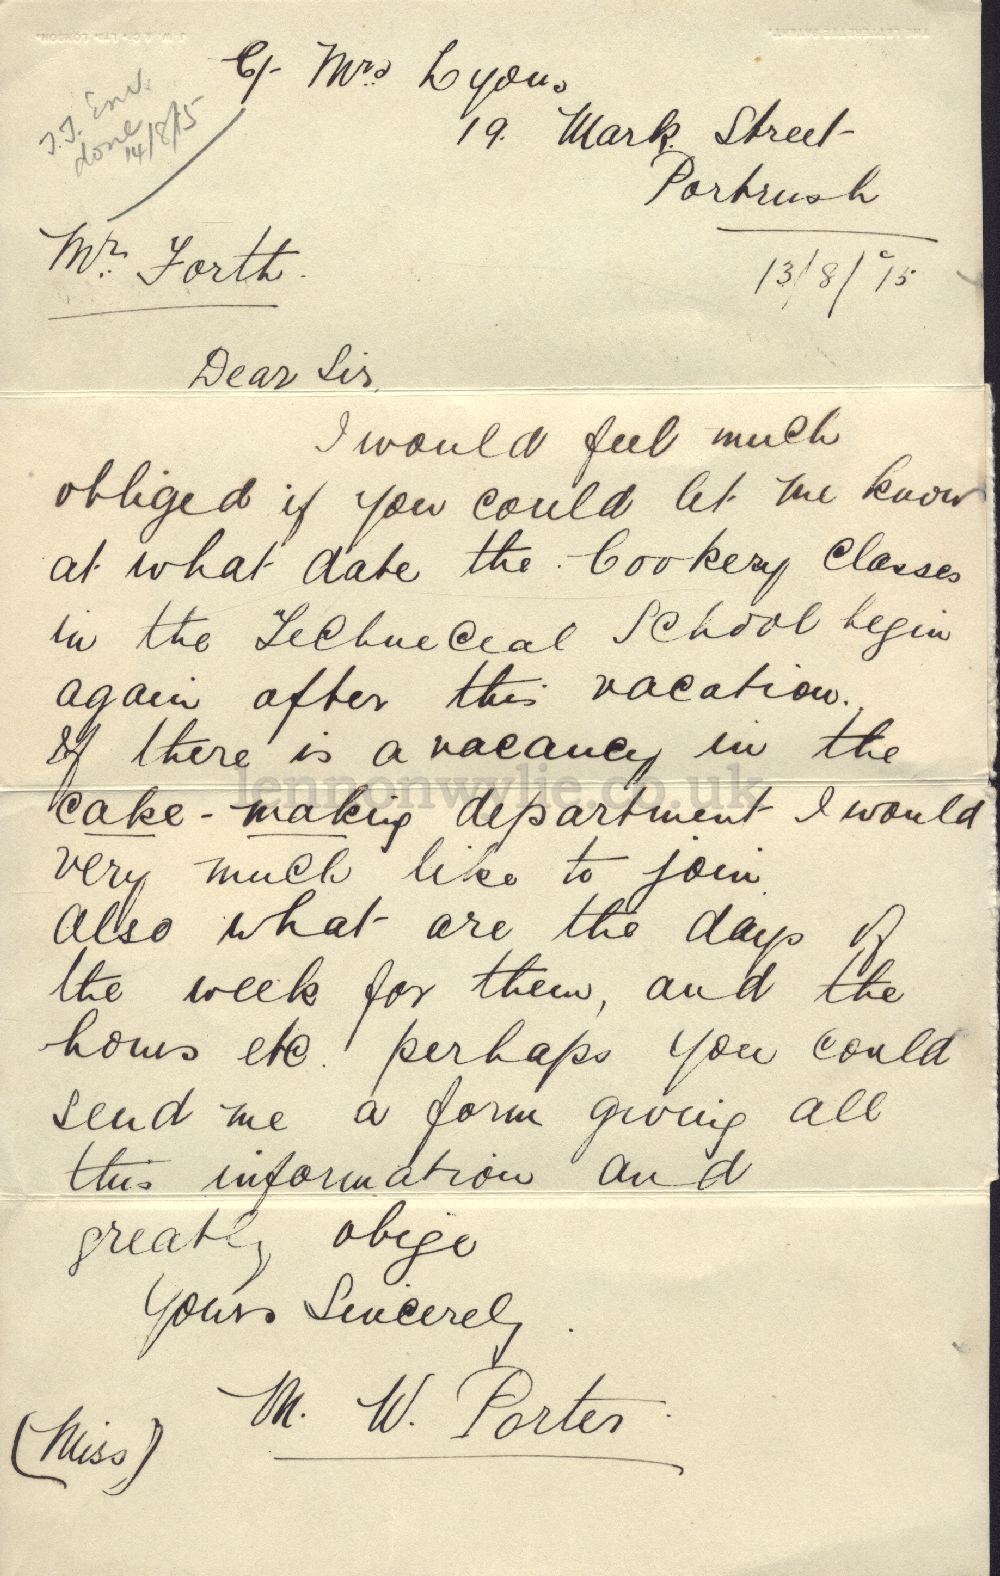 C/- Mrs Lyons
19. Mark Street
Portrush
T.T. Env.
done
14/8/15
13/8/'15
Mr. Forth.
Dear Sir,
I would feel much
obliged if you could let me know
at what date the Cookery Classes
in the Technecial School begin
again after this vacation.
If there is a vacancy in the
cake-making department I would
very much like to join
also what are the days of
the week for them, and the
hours etc. perhaps you could
send me a form giving all
this information and
greatly obige
Yours Sincerely.
M. W. Porter.
(Miss)
lennonwylie.co.uk